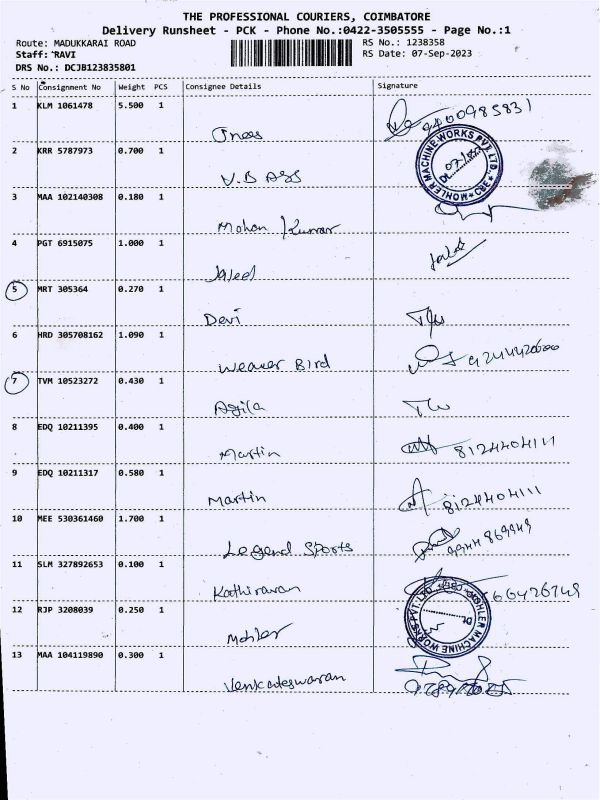 THE PROFESSIONAL COURIERS, COIMBATORE
Delivery Runsheet - PCK - Phone No.:0422-3505555 - Page No.:1
Route: MADUKKARAI ROAD RS No.: 1238358
Staff: RAVI RS Date: 07-Sep-2023
DRS No.: DCJB123835801
S No Consignment No Weight PCS Consignee Details Signature
1 KLM 1061478 5.500 1
2 KRR 5787973 0.700 1
V.B
MOHLER MACHINE WORKS PVT LTD. CBE
3 MAA 102140308 0.180 1
Mohan Kumar
4 PGT 6915075 1.000 1
5 MRT 305364 0.270 1
Devi
6 HRD 305708162 1.090 1
Weaver Bird
7 TVM 10523272 0.430 1
Agila
8 EDQ 10211395 0.400 1
Martin 8124404111
9 EDQ 10211317 0.580 1
Martin 8124404111
10 MEE 530361460 1.700 1
Legend Sports 9944869949
11 SLM 327892653 0.100 1
Kathiravan
12 RJP 3208039 0.250 1
Mohler
MOHLER MACHINE WORKS PVT LTD. CBE
13 MAA 104119890 0.300 1
Venkadeswaran